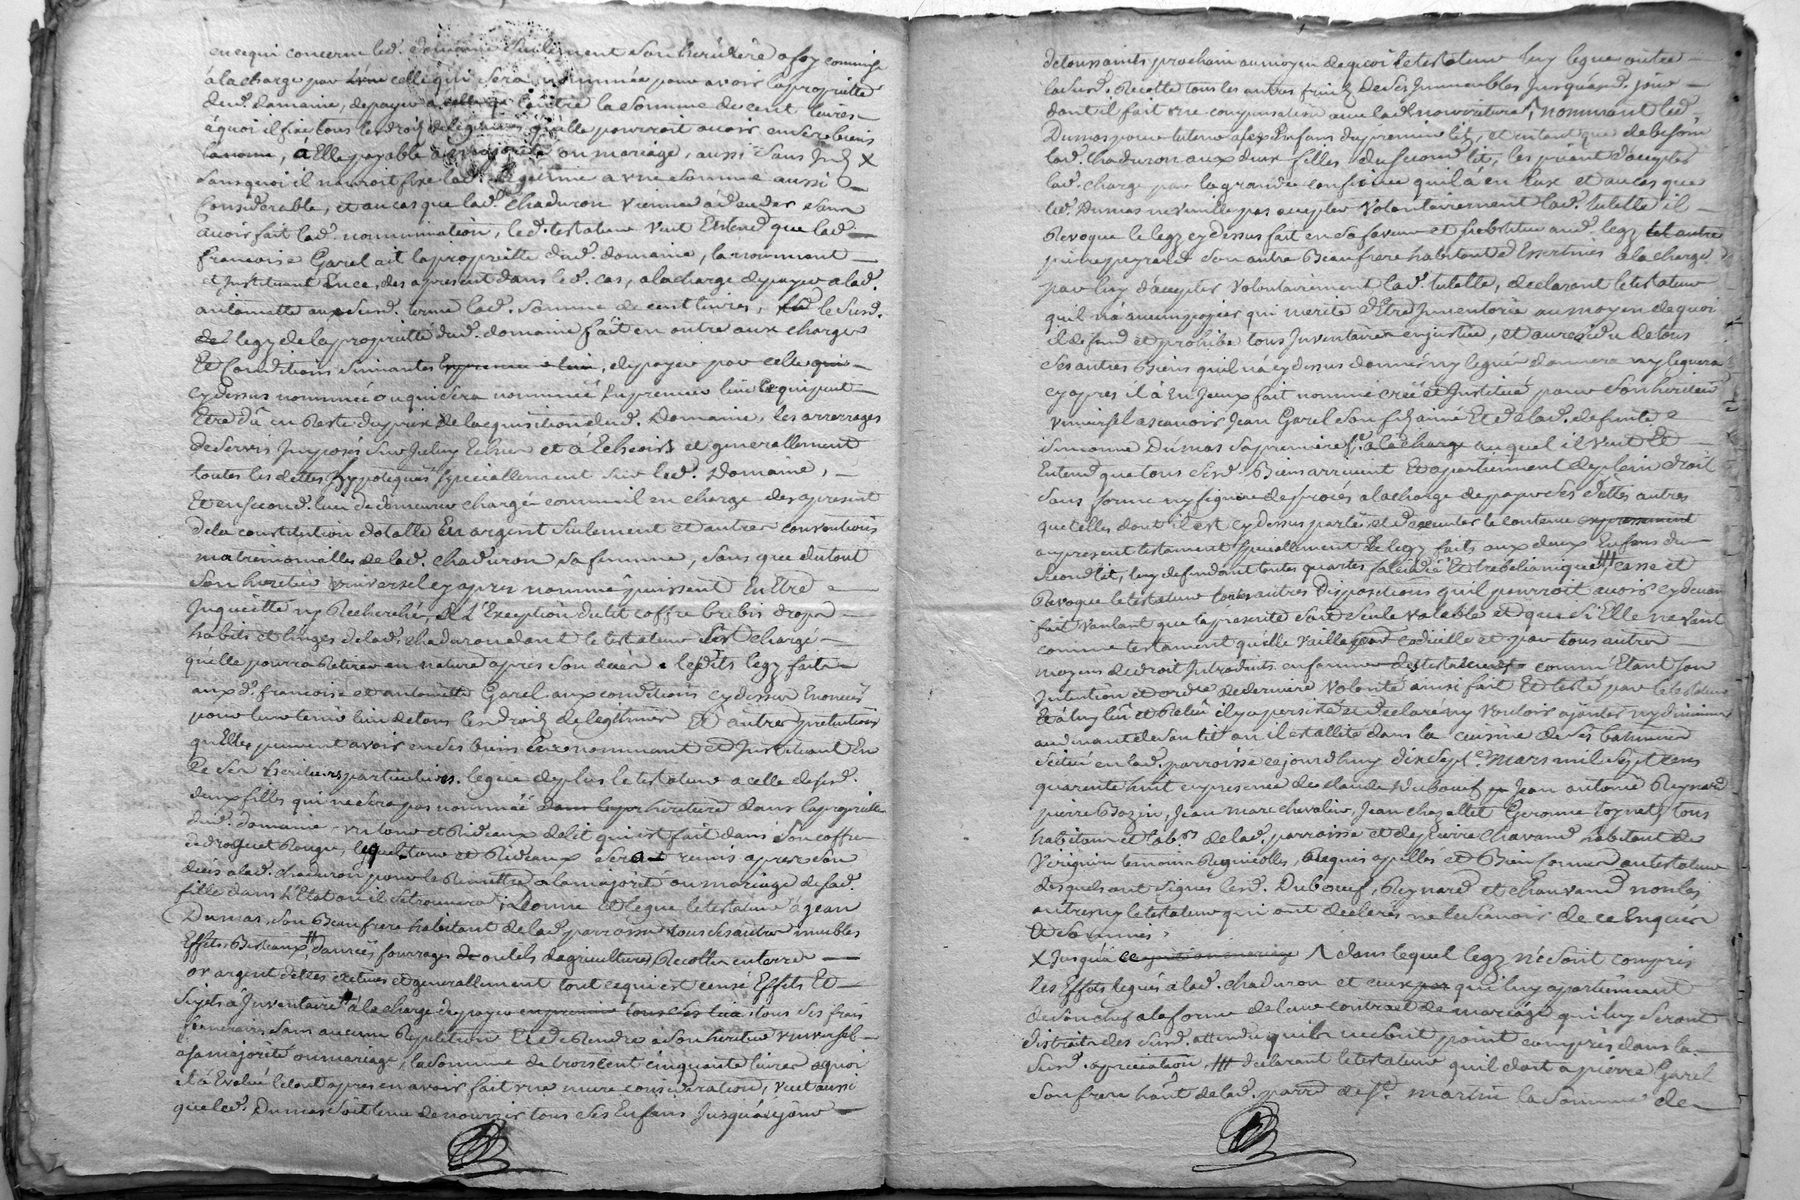 en ce qui concerne led. domaine seulement son heritière a foy commise
à la charge par celle qui sera nommée pour avoir la proprietté
dud. domaine, de payer a l'autre la somme de cent livres
à quoi il fixe tous les droits de legitime qu'elle pourroit avoir en ses biens
a Elle payable a majorité ou mariage, aussi sans X
sans quoi il n'auroit fixé lad. legitime a une somme aussi
Considerable, et au cas que lad. Chaduron vienne à deceder sans
avoir fait lad. nommination, led. testateur veut Entend que lad.
francoise Garel ait la proprietté dud. domaine, la nommant
et Instituant En ce, des apresent dans led. cas, a la charge de payer a lad.
antoinette aux susd. terme lad. somme de cent livres, le susd.
legz de la proprietté dud. domaine fait en outre aux charges
Et Conditions suivantes, de payer par celle
cy dessus nommée ou qui sera nommée En premier lieu ce qui peut
Etre dû en Reste du prix de l'acquisition dud. Domaine, les arrerages
de servis Imposés sur Echus et à Echeoir et generallement
toutes les dettes hyppotequés specialement sur led. Domaine,
Et en second. lieu de demeurer chargée comme il en charge des apresent
de la constitution dotalle En argent seulement et autres conventions
matrimonialles de lad. Chaduron sa femme, sans que du tout
son heretier universel cy apres nommé puissent En Etre
Inquietté ny Recherché, a L'Exception du lit coffre brebis drapa
habits et linges de lad. chaduron dont le testateur s'est chargé
qu'elle pourra Retirer en nature apres son decès. lesdits legz faits
aux d. francoise et antoinette Garel aux conditions cy dessus Enoncées
pour leur tenir lieu de tous les droits de legitimes Et autres pretentions
qu'Elles peuvent avoir en ses biens les nommant et Instituant En
Ce ses heritieres particulieres. legue de plus le testateur a celle desd.
deux filles qui ne sera pas nommée dans la proprietté
dud. domaine un tour et Rideaux de lit qui est fait dans son coffre
de droguet Rouge, lequel tour et Rideaux sera remis apres son
deces a lad. chaduron pour le Remettre a la majorité ou mariage de sad.
fille dans L'Etat ou il se trouvera; Donne et legue le testateur à jean
Dumas son Beaufrere habitant de lad. parroisse tous ses autres meubles
Effets, Bestiaux, danrées fourrages outils d'agriculture, Recoltes en terre
or argent dettes actives et generallement tout ce qui est censé Effets Et
sujets à Inventaire à la charge de payer tous ses frais
funeraires, sans aucune Repetition Et de Rendre a son heritier universel
a sa majorité ou mariage, la somme de trois cent cinquante livres a quoi
il a Evalué le tout apres en avoir fait une mure consideration, veut aussi
que led. Dumas soit tenu de nourrir tous ses Enfans jusqu'au jour
de toussaints prochain au moyen de quoi le testateur luy legue outre
la susd. Recolte tous les autres fruits de ses Immeubles jusqu'aud. jour
dont il fait une compensation avec lad. nourriture, nommant led.
Dumas pour tuteur a ses Enfans du premier lit, et entant que de besoin
lad. Chaduron aux deux filles du second lit, les priant d'accepter
lad. charge par la grande confiance qu'il à en Eux et au cas que
led. Dumas ne veuille pas accepter volontairement lad. tutelle il
Revoque le legz cy dessus fait en sa faveur et substitue aud. legz
pierre peyrard son autre Beaufrere habitant d'Essertines à la charge
par luy d'accepter volontairement lad. tutelle, declarant le testateur
qu'il n'a aucun papier qui merite d'Etre Inventorié au moyen de quoi
il defend et prohibe tous Inventaire en justice, et au residu de tous
ses autres Biens qu'il n'a cy dessus donné ny legué donnera ny leguera
cy apres il à En Iceux fait nommé créé et Institué pour son heritier
universel a scavoir Jean Garel son fils ainé Et de lad. defunte
simonne Dumas sa premiere f. a la charge auquel il veut Et
Entend que tous sesd. Biens arrivent Et apartiennent de plein droit
sans forme ny figure de procés a la charge de payer ses dettes autres
que telles dont il est cy dessus parlé et d'executer le contenu
au present testament specialement le legz faits aux deux Enfans du
second lit, luy defendant toutes quartes falcidie Et trebellianique, casse et
Revoque le testateur toutes autres dispositions qu'il pourroit avoir cy devant
fait voulant que la presente soit seule valable et que si Elle ne vaut
comme testament qu'elle vaille pour codicille et par tous autres
moyens de droit Introduits en faveur des testateurs comme Etant son
Intention et ordre de derniere volonté ainsi fait Et testé par le testateur
Et a luy lû et Relû il y a persisté et declare ny vouloir ajouter ny diminuer
au devant de son lit ou il est allité dans la cuisine de ses batimens
scitué en lad. parroisse ce jourd'huy dix sept e mars mil sept cens
quarente huit en presence de claude Duboeuf Jean antoine Reynard
pierre Bozin, Jean marc chevalier, Jean chazallet Etienne toynet, tous
habitans et lab.rs de lad. parroisse et de pierre Chavand habitant de
Verignin temoins Regnicolles, Requis apellés et Bien formés au testateur
desquels ont signés lesd. Duboeuf, Reynard et chauvand non les
autres ny le testateur qui ont declarés ne le scavoir de ce Enquis
Et sommés.
X jusqu'a Λ dans lequel legz ne sont compris
les Effets legués à lad. chaduron et ceux qui luy apartiennent
de son chef a la forme de leur contract de mariage qui luy seront
distraits des susd. attendu qu'ils ne sont point compris dans la
susd. apreciation, # declarant le testateur qu'il doit a pierre Garel
son frere habt de lad. parr. de st. martin la somme de